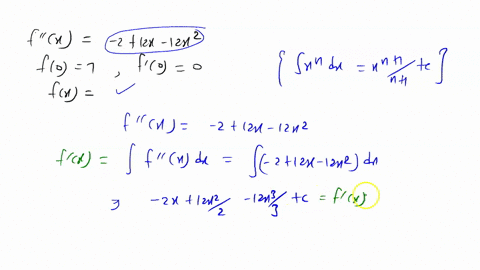 f''(x) = -2 + 12x - 12x²
f(0) = 7 , f'(0) = 0
{ ∫xⁿ dx = xⁿ⁺¹/n+1 + c }
f(x) = ✓
f''(x) = -2 + 12x - 12x²
f'(x) = ∫ f''(x) dx = ∫(-2 + 12x - 12x²) dx
⇒ -2x + 12x²/2 - 12x³/3 + c = f'(x)